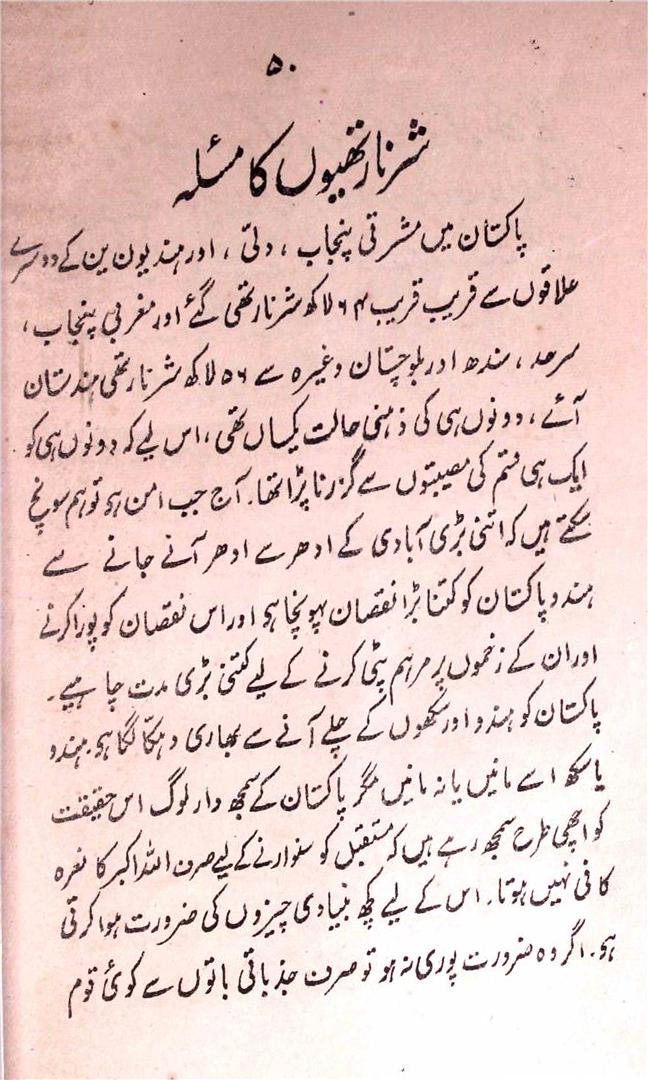 ۵۰
شرنارتھیوں کا مسئلہ
پاکستان میں مشرقی پنجاب ، دلّی ، اور ہند یونین کے دوسرے
علاقوں سے قریب قریب ۶۴ لاکھ شرنارتھی گئے اور مغربی پنجاب ،
سرحد ، سندھ اور بلوچستان وغیرہ سے ۵۶ لاکھ شرنارتھی ہندستان
آئے ، دونوں ہی کی ذہنی حالت یکساں تھی ، اس لیے کہ دونوں ہی کو
ایک ہی قسم کی مصیبتوں سے گزرنا پڑا تھا۔ آج جب امن ہو تو ہم سونچ
سکتے ہیں کہ اتنی بڑی آبادی کے ادھر سے ادھر آنے جانے سے
ہند و پاکستان کو کتنا بڑا نقصان پہونچا ہو اور اس نقصان کو پورا کرنے
اور ان کے زخموں پر مرہم پٹی کرنے کے لیے کتنی بڑی مدت چاہیے ۔
پاکستان کو ہندو اور سکھوں کے چلے آنے سے بھاری دھکّا لگا ہو۔ ہندو
یا سکھ اسے مانیں یا نہ مانیں مگر پاکستان کے سمجھ دار لوگ اس حقیقت
کو اچھی طرح سمجھ رہے ہیں کہ مستقبل کو سنوارنے کے لیے صرف اللہ اکبر کا نعرہ
کافی نہیں ہوتا۔ اس کے لیے کچھ بنیادی چیزوں کی ضرورت ہوا کرتی
ہو۔ اگر وہ ضرورت پوری نہ ہو تو صرف جذباتی باتوں سے کوئی قوم